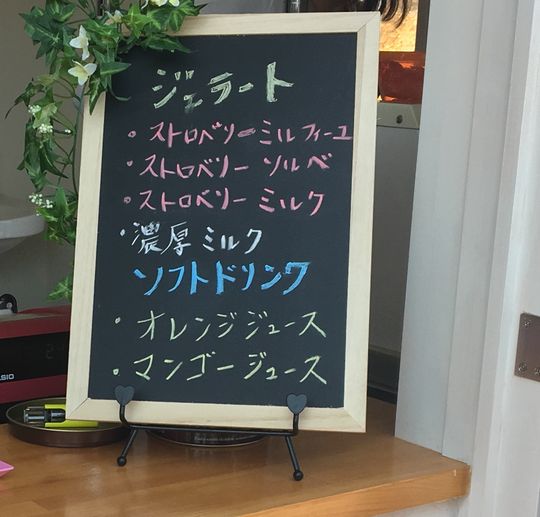 ジェラート
・ストロベリーミルフィーユ
・ストロベリー ソルベ
・ストロベリー ミルク
・濃厚ミルク
ソフトドリンク
・オレンジジュース
・マンゴージュース
SIO